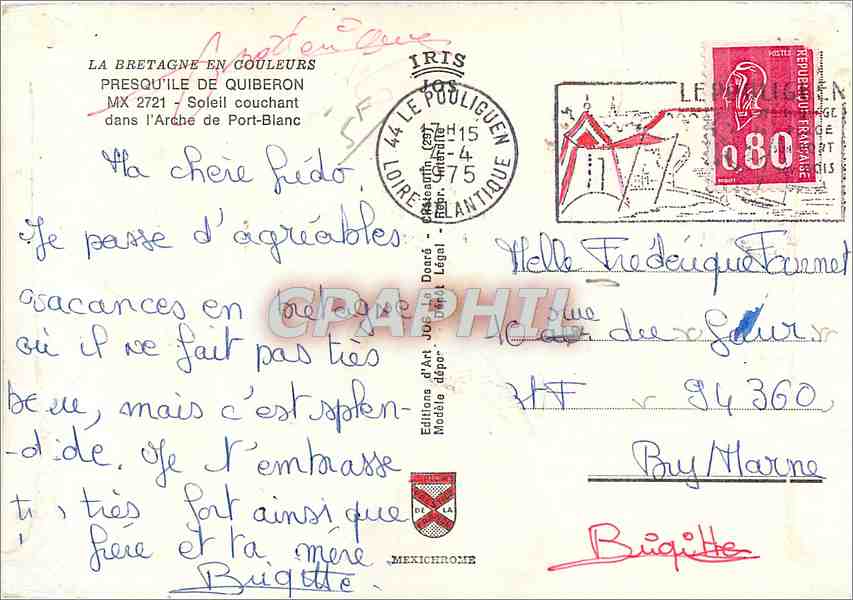 LA BRETAGNE EN COULEURS
PRESQU'ILE DE QUIBERON
MX 2721 - Soleil couchant
dans l'Arche de Port-Blanc
IRIS
JOS
5F
44 LE POULIGUEN
17H15
4-4
1975
LOIRE ATLANTIQUE
LE POULIGUEN
POSTES
REPUBLIQUE FRANÇAISE
0,80
Ma chère frédo,
Je passe d'agréables
vacances en bretagne
où il ne fait pas très
beau, mais c'est splen-
-dide. Je t'embrasse
très fort ainsi que
frère et ta mère.
Brigitte.
Editions d'Art JOS Le Doaré - Châteaulin (29)
Modèle déposé - Dépôt Légal - Repr. Interdite
CPAPHIL
Melle Frédérique Fournet
10 rue du
94 360
Bry/Marne
Brigitte
DE LA
MEXICHROME